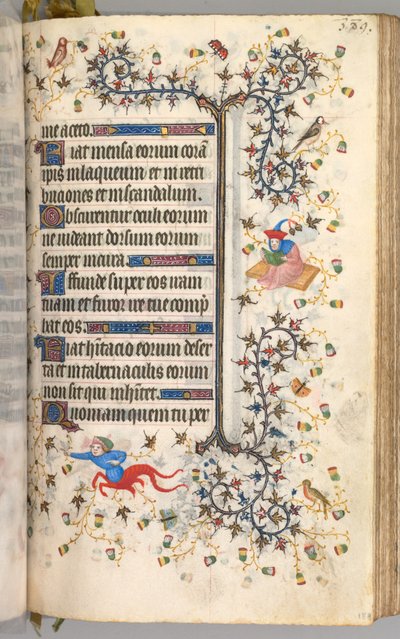 389.
me aceto.
Fiat mensa eorum corā
ipis in laqueum et in retri
buciones et in scandalum.
Obscurentur oculi eorum
ne videant dorsum eorum
semper incurva.
Effunde super eos iram
tuam et furor ire tue comp̄
hat eos.
Fiat hītacio eorum deser
ta et in tabernaculis eorum
non sit qui inhītet.
Quoniam quem tu per